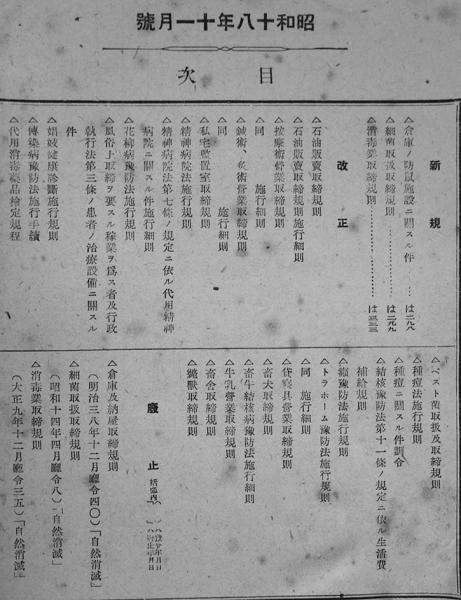 昭和十八年十一月號
目次
新規
△倉庫ノ防鼠施設ニ關スル件
△細菌取扱取締規則
△消毒業取締規則
改正
△石油販賣取締規則
△石油販賣取締規則施行細則
△按摩術營業取締規則
△同 施行細則
△鍼術、灸術營業取締規則
△同 施行細則
△私宅監置室取締規則
△精神病院法施行規則
△精神病院法第七條ノ規定ニ依ル代用精神
病院ニ關スル件施行細則
△花柳病豫防法施行規則
△風俗上取締ヲ要スル稼業ヲ爲ス者及行政
執行法第三條ノ患者ノ治療設備ニ關スル
件
△娼妓健康診斷施行規則
△傳染病豫防法施行手續
△代用消毒藥品檢定規程
△ペスト菌取扱及取締規則
△種痘法施行規則
△種痘ニ關スル件訓令
△結核豫防法第十一條ノ規定ニ依ル生活費
補給規則
△癩豫防法施行規則
△トラホーム豫防法施行規則
△同 施行細則
△貸寢具營業取締規則
△畜犬取締規則
△畜牛結核病豫防法施行細則
△牛乳營業取締規則
△畜舍取締規則
△斃獸取締規則
廢止
△倉庫及納屋取締規則
(明治三八年十二月廳令四〇)「自然消滅」
△細菌取扱取締規則
(昭和十四年四月廳令八)「自然消滅」
△消毒業取締規則
(大正九年十二月廳令三五)「自然消滅」